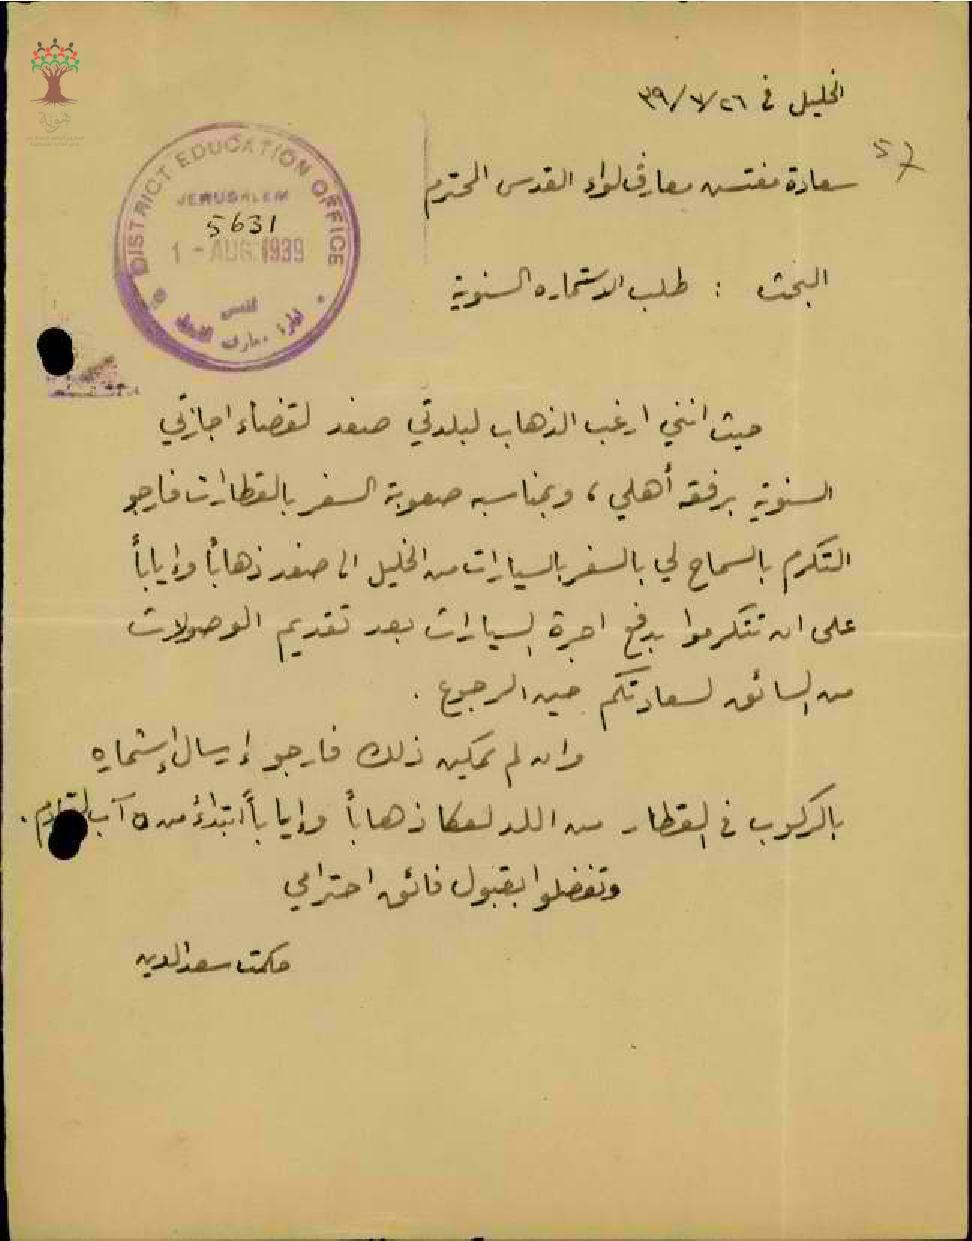 هوية
الخليل في ٢٦/٧/٣٩
سعادة مفتش معارف لواء القدس المحترم
DISTRICT EDUCATION OFFICE
JERUSALEM
5631
1 - AUG. 1939
القدس
البحث : طلب الاستماره السنوية
حيث انني ارغب الذهاب لبلدتي صفد لقضاء اجازتي
السنوية برفقة أهلي ، وبمناسبه صعوبة السفر بالقطارات فارجو
التكرم بالسماح لي بالسفر بالسيارات من الخليل الى صفد ذهاباً وإياباً
على ان تتكرموا بدفع اجرة السيارات بعد تقديم الوصولات
من السائق لسعادتكم حين الرجوع .
وان لم يمكن ذلك فارجو إرسال إستماره
بالركوب في القطار من اللد لعكا ذهاباً وإياباً ابتداءً من ٥ آب القادم .
وتفضلوا بقبول فائق احترامي
حكمت سعد الدين